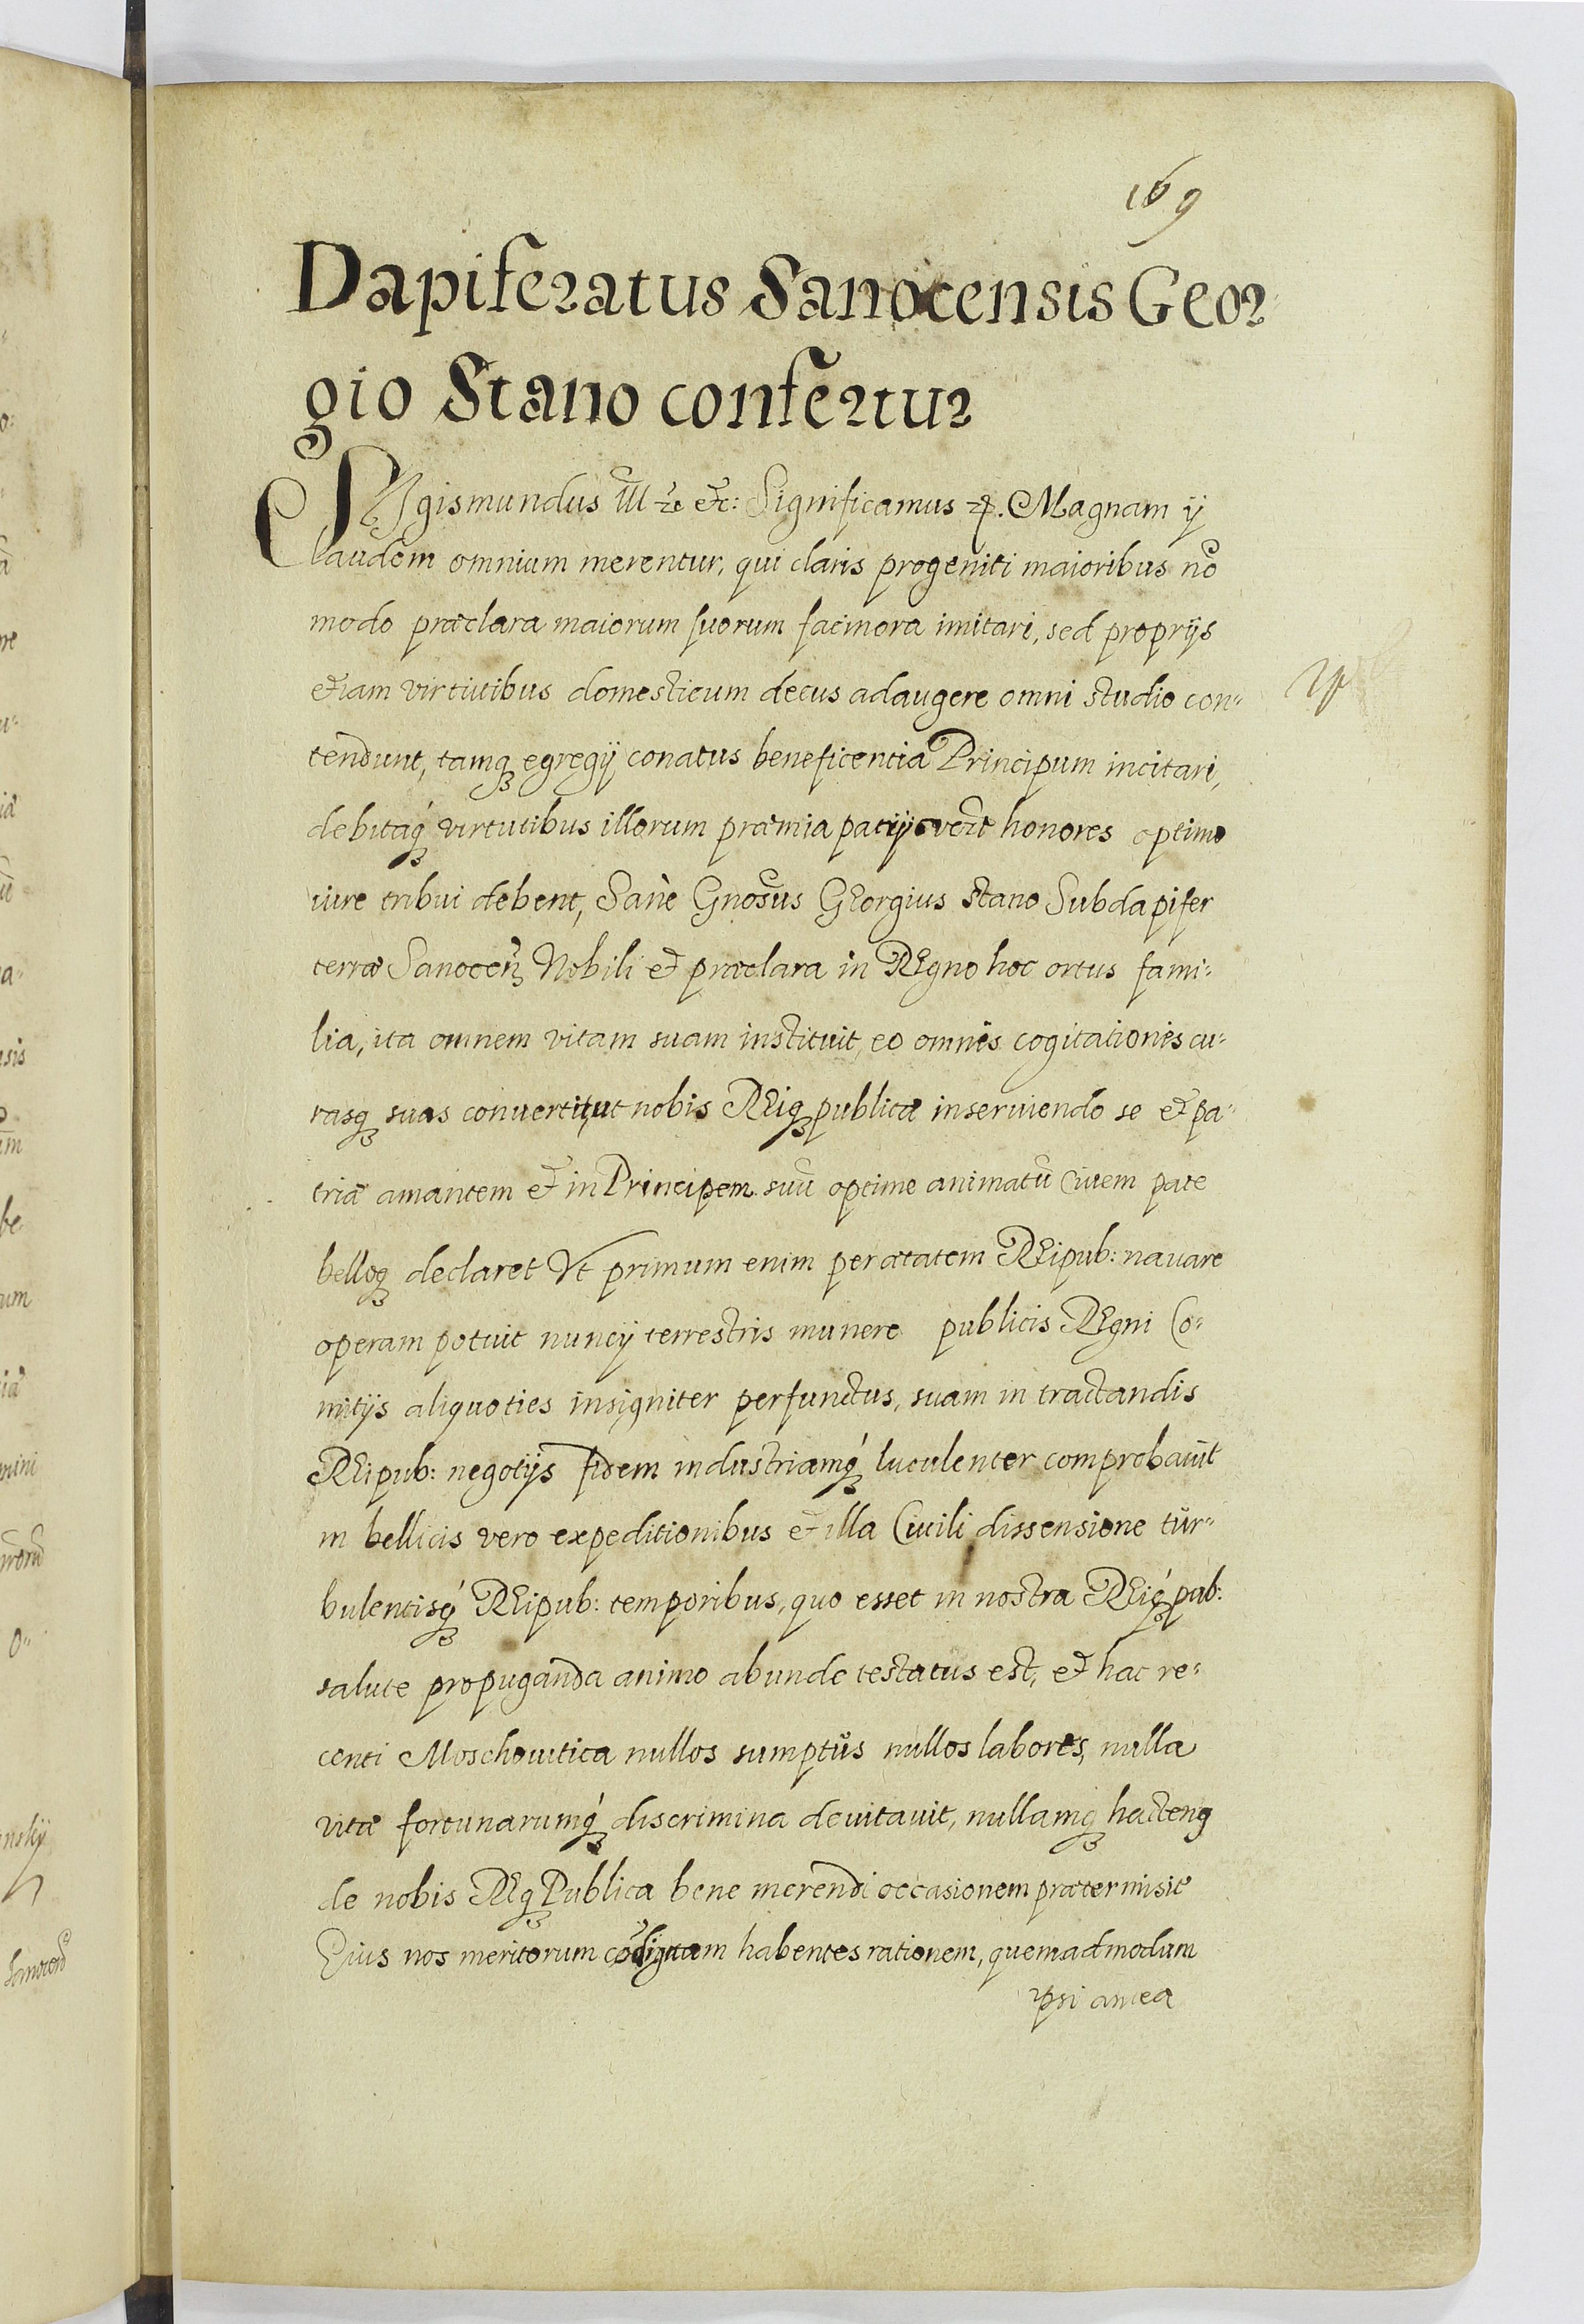 169
Dapiferatus Sanocensis Geor-
gio Stano confertur
Sigismundus III etc etc: Significamus etc. Magnam ij
laudem omnium merentur, qui claris progeniti maioribus nō
modo præclara maiorum suorum facinora imitari, sed proprijs
etiam virtutibus domesticum decus adaugere omni studio con-
tendunt, tamq egregij conatus beneficentia Principum incitari,
debitaq́ virtutibus illorum præmia honores optimo
iure tribui debent, Sanè Gnosus Georgius Stano Subdapifer
terræ Sanoceñ Nobili et præclara in Regno hoc ortus fami-
lia, ita omnem vitam suam instituit, eo omnes cogitationes cu-
rasq suas convertit, ut nobis Reiq publicæ inserviendo se et pa-
triæ amantem et in Principem suū optime animatū Civem pace
belloq declaret Vt primum enim per ætatem Reipub: navare
operam potuit nuncij terrestris munere publicis Regni Co-
mitijs aliquoties insigniter perfunctus, suam in tractandis
Reipub: negotijs fidem industriamq́ luculenter comprobavit
in bellicis vero expeditionibus et illa Civili dissensione tur-
bulentisq́ Reipub: temporibus, quo esset in nostra Reiq́ pub:
salute propuganda animo abunde testatus est, et hac re-
centi Moschovitica nullos sumptus nullos labores, nulla
vitæ fortunarumq́ discrimina devitavit, nullamq hacteng
de nobis Req Publica bene merendi occasionem prætermisit
Eius nos meritorum cōdignam habentes rationem, quemadmodum
ipsi antea